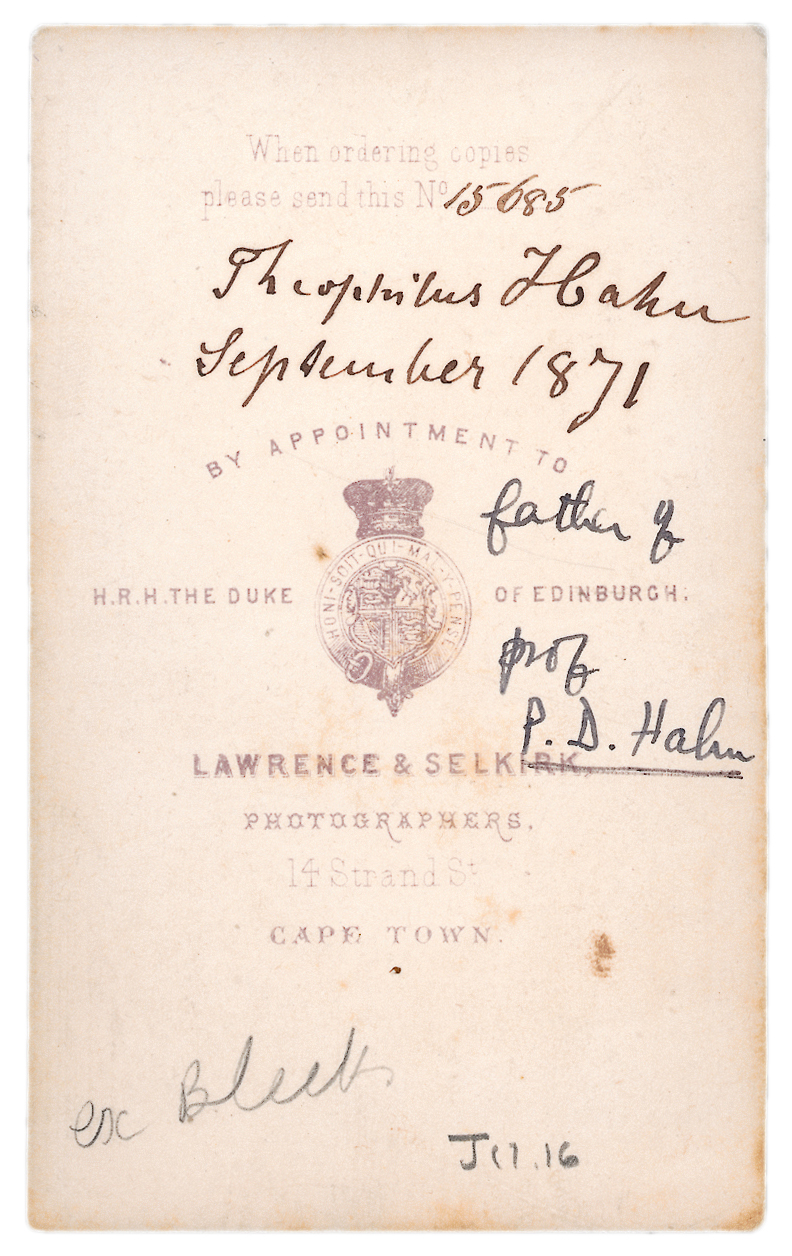 When ordering copies
please send this Nº 15685
Theophilus Hahn
September 1871
BY APPOINTMENT TO
father of
HONI·SOIT·QUI·MAL·Y·PENSE
H.R.H. THE DUKE OF EDINBURGH.
prof
P. D. Hahn
LAWRENCE & SELKIRK,
PHOTOGRAPHERS,
14 Strand St
CAPE TOWN.
ex Bleek